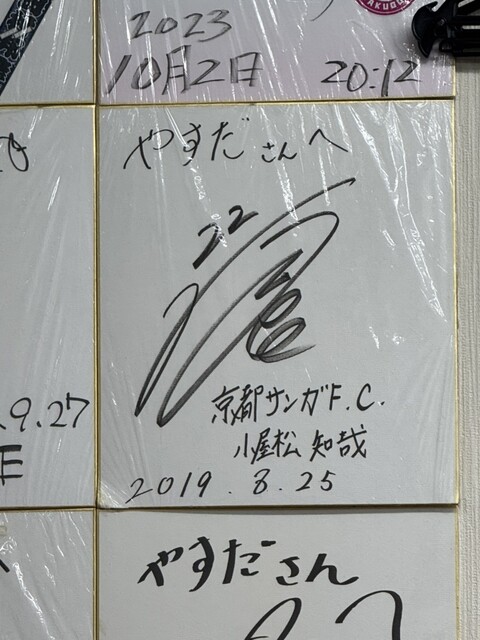 2023
10月2日 20:12
やすださんへ
22
京都サンガF.C.
小屋松 知哉
2019.8.25
.9.27
E
やすださん